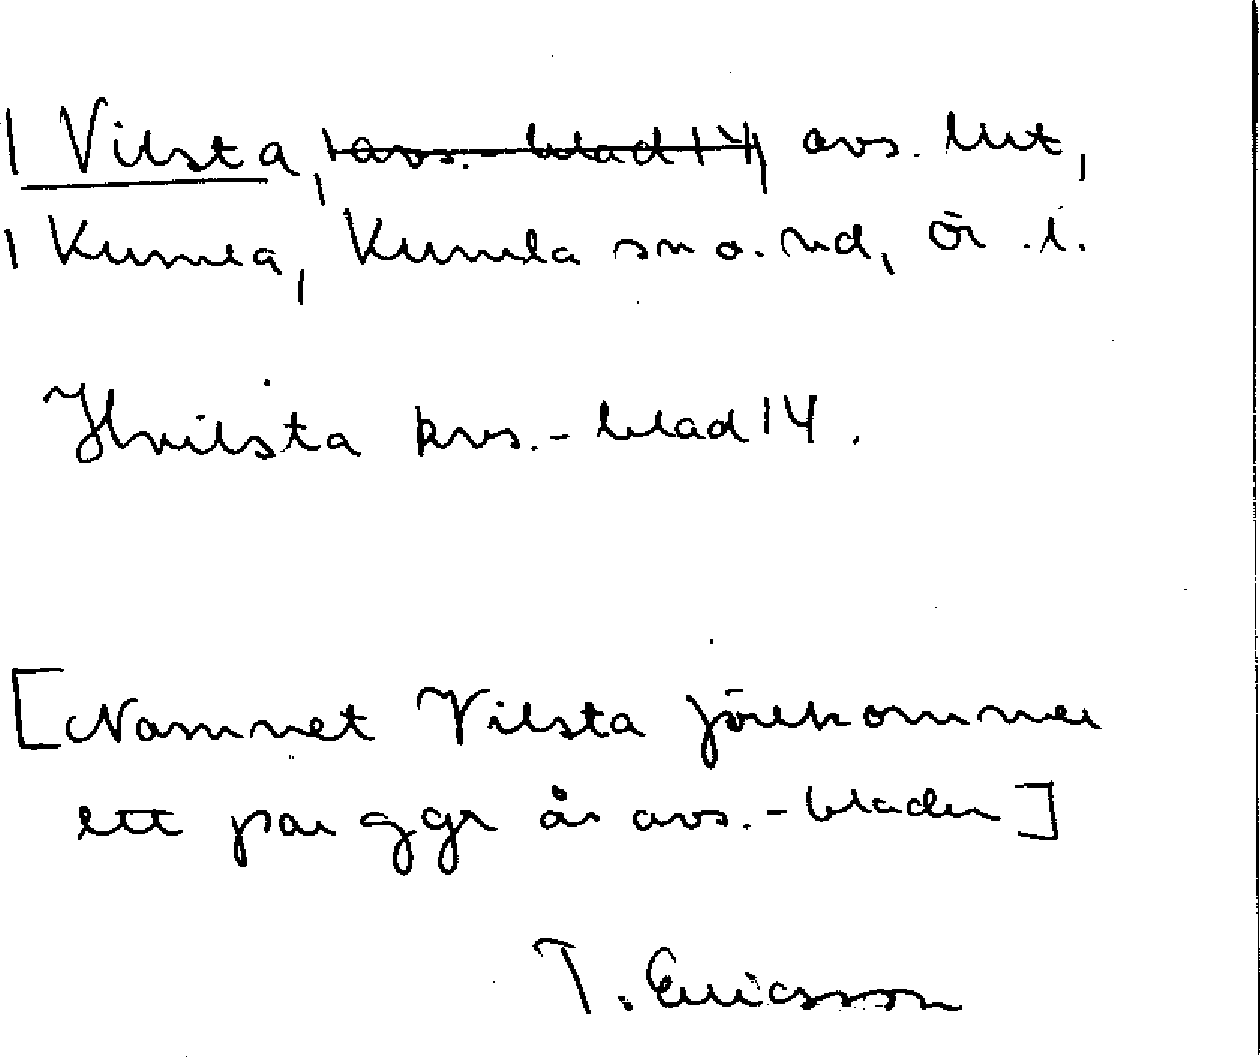 | Vilsta, avs.-blad 14, avs. lut,
| Kumla, Kumla sn o. hd, ör. l.
Hvilsta krs.-blad 14.
[Namnet Vilsta förekommer
ett par ggr å avs.-bladen]
T. Ericsson